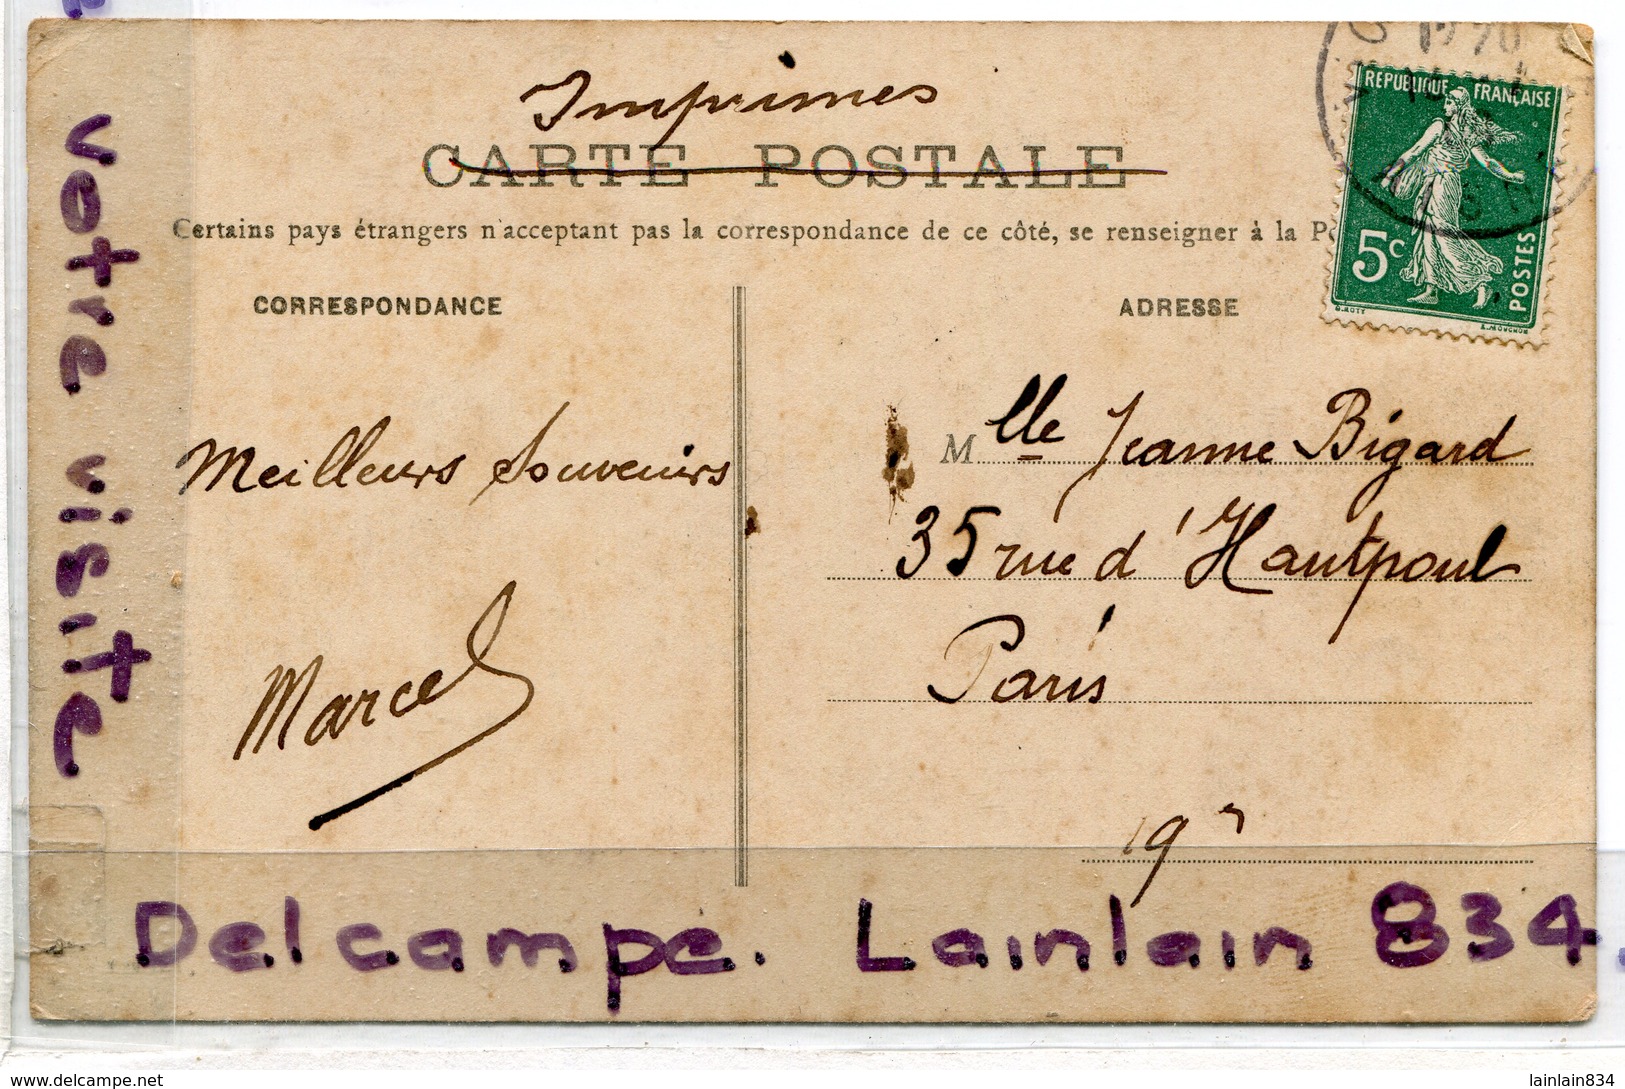 Imprimes
CARTE POSTALE
Certains pays étrangers n'acceptant pas la correspondance de ce côté, se renseigner à la
CORRESPONDANCE
ADRESSE
REPUBLIQUE FRANÇAISE
5c
POSTES
Meilleurs Souvenirs
Marcel
Mlle Jeanne Bigard
35 rue d'Hautpoul
Paris
19e
votre visite
Delcampe. Lainlain 834.
www.delcampe.net
lainlain834